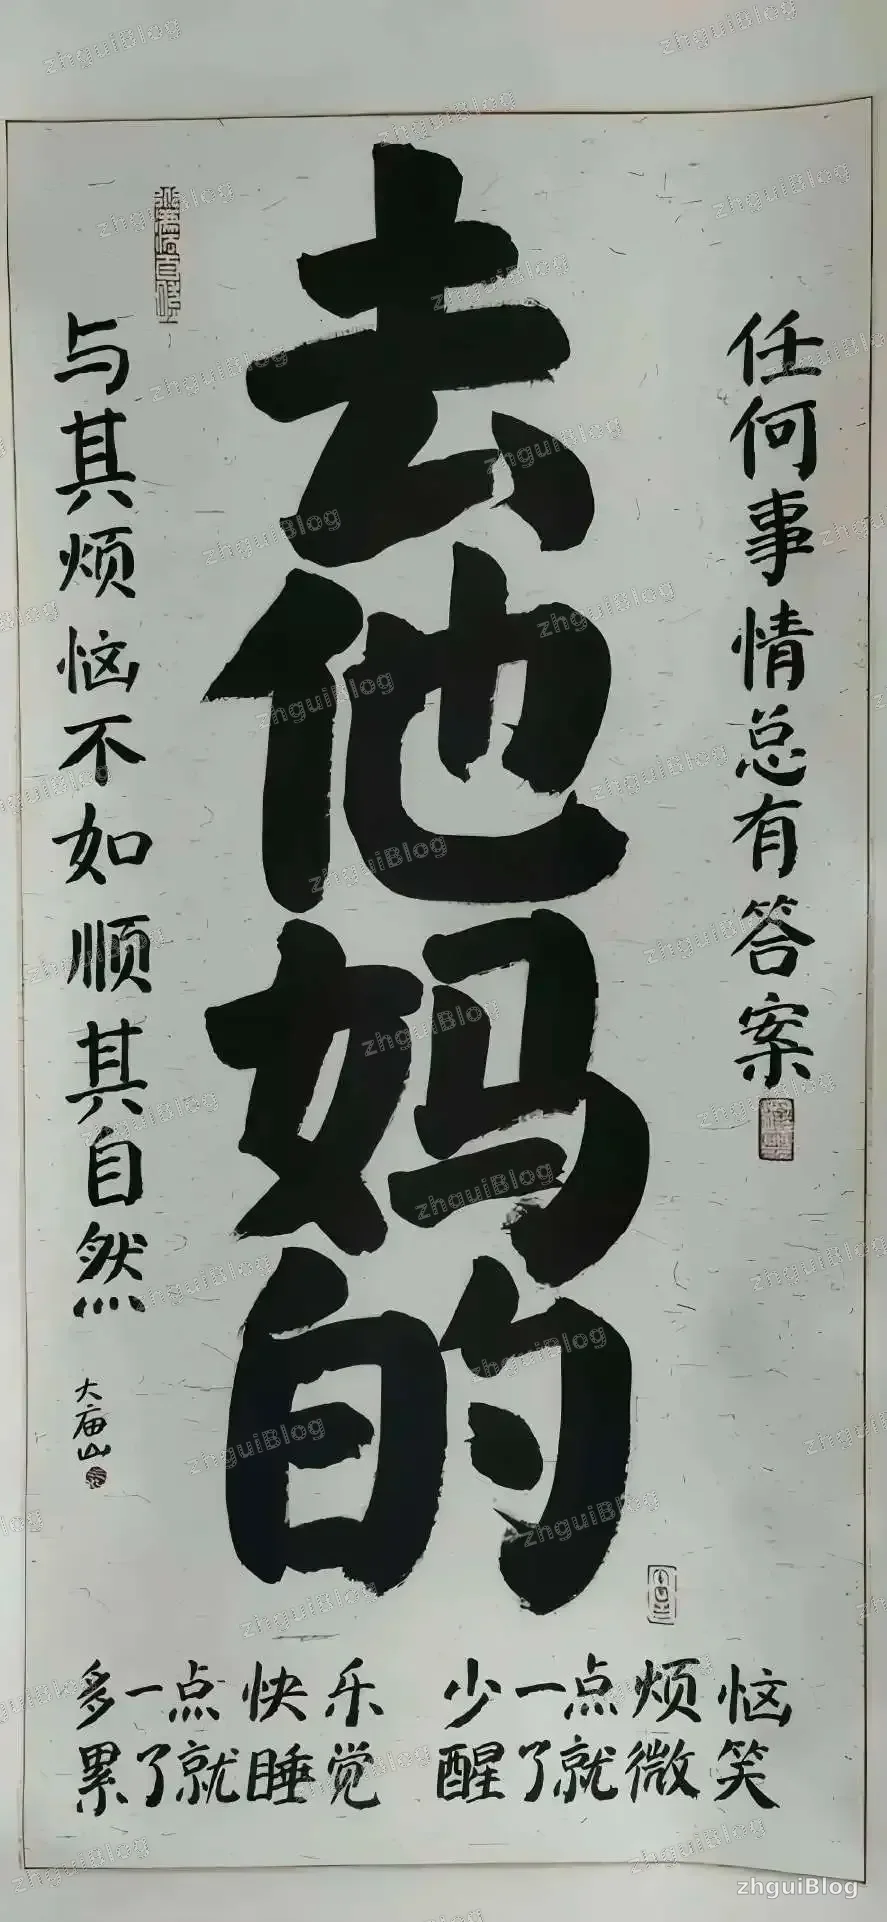 任何事情总有答案
去他妈的
与其烦恼不如顺其自然
大庙山
多一点快乐 少一点烦恼
累了就睡觉 醒了就微笑
zhguiBlog